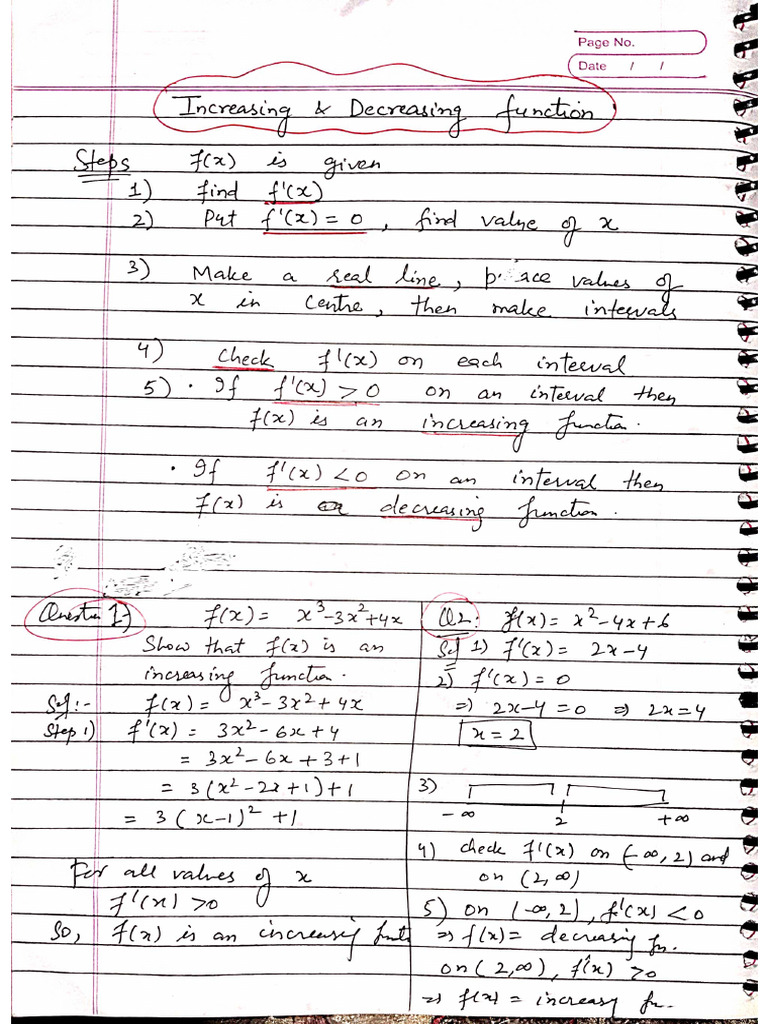 Page No.
Date / /
Increasing & Decreasing function
Steps f(x) is given
1) find f'(x)
2) Put f'(x) = 0 , find value of x
3) Make a real line, place values of
x in centre, then make intervals
4) Check f'(x) on each interval
5) • If f'(x) > 0 on an interval then
f(x) is an increasing function.
• If f'(x) < 0 on an interval then
f(x) is decreasing function.
Question 1) f(x) = x³-3x²+4x
Show that f(x) is an
increasing function.
Sol:- f(x) = x³ - 3x² + 4x
Step 1) f'(x) = 3x² - 6x + 4
= 3x² - 6x + 3 + 1
= 3(x² - 2x + 1) + 1
= 3(x-1)² + 1
For all values of x
f'(x) > 0
So, f(x) is an increasing
Q2: f(x) = x² - 4x + 6
Sol 1) f'(x) = 2x - 4
2) f'(x) = 0
⇒ 2x-4 = 0 ⇒ 2x = 4
x = 2
3)
-∞ 2 +∞
4) check f'(x) on (-∞, 2) and
on (2, ∞)
5) on (-∞, 2), f'(x) < 0
⇒ f(x) = decreasing fn.
on (2, ∞), f'(x) > 0
⇒ f(x) = increasing fn.